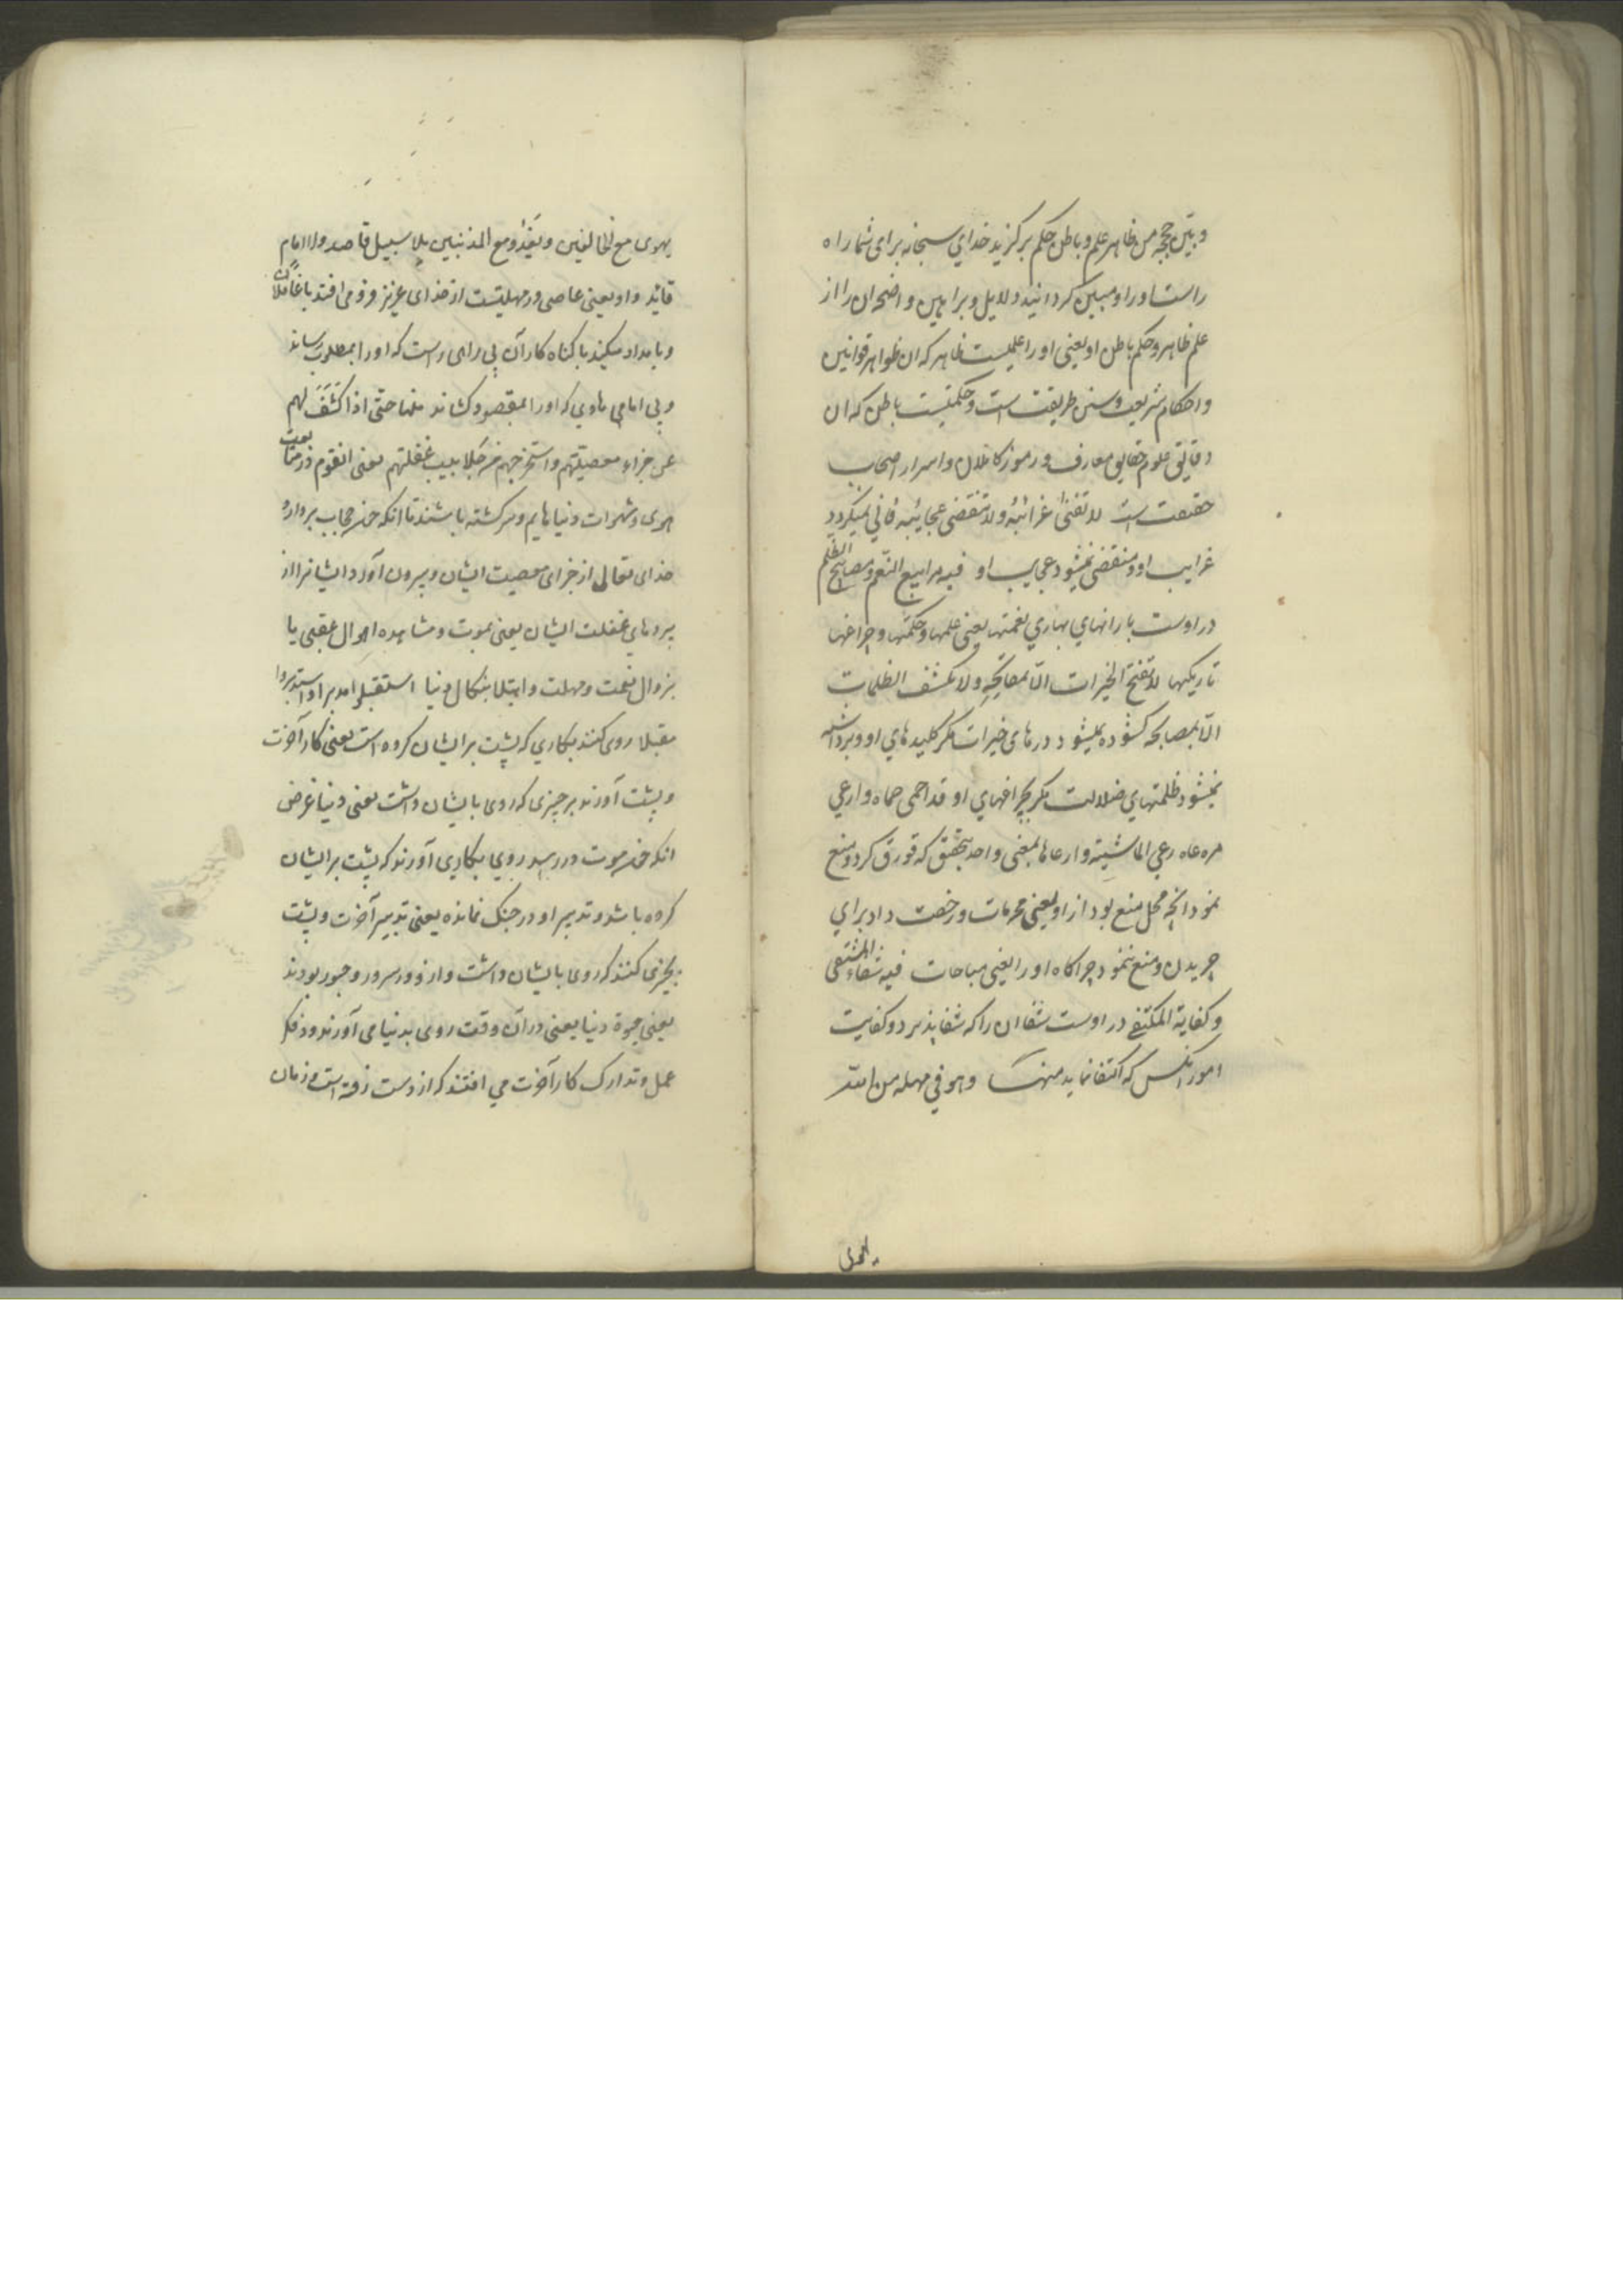 و بیّن حججه من ظاهر علم و باطن حکم برگزید خدای سبحانه برای شما راه
راست او را و مبین گردانید دلایل و براهین واضحه آن را از
علم ظاهر و حکم باطن او یعنی او را علمیست ظاهر که آن ظواهر قوانین
و احکام شریعت و سنن طریقت است و حکمتیست باطن که ان
دقایق علوم حقایق معارف و رموز کاملان و اسرار اصحاب
حقیقت است لا تفنی غرائبه و لا تنقضی عجایبه فانی نمیگردد
غرایب او و منقضی نمیشود عجایب او فیه مرابیع النّعم و مصابیح الظلم
در اوست بارانهای بهاری نعمتها یعنی علمها و حکمتها و چراغها
تاریکیها لا تفتح الخیرات الّا بمفاتحه و لا تکشف الظلمات
الّا بمصابحه گشوده نمیشود درهای خیرات مگر کلیدهای او و برداشته
نمیشود ظلمتهای ضلالت مگر بچراغهای او قد احمی حماه و ارعی
مرعاه رعی الماشیة و ارعاها بمعنی واحد بتحقیق که قورق کرد و منع
نمود آنچه محل منع بود از او یعنی محرمات و رخصت داد برای
چریدن و منع ننمود چراگاه او را یعنی مباحات فیه شفاء المشتفی
و کفایة المکتفی در اوست شفا ان را که شفا پذیرد و کفایت
امور انکس که اکتفا نماید منها و هو فی مهلة من الله
یهوی
یهوی مع الغافلین و یغدو مع المذنبین بلا سبیل قاصد و لا امام
قائد و او یعنی عاصی در مهلتیست از خدای عزیز فرو می افتد با غافلان
و بامداد میکند با گناه کاران بی راهی راست که او را بمطلوب رساند
و بی امامی هادی که او را بمقصود کشاند منها حتی اذا کشف لهم
عن جزاء معصیتهم و استخرجهم من جلابیب غفلتهم یعنی انقوم در متابعت
هوی و شهوات دنیا هایم و سرگشته باشند تا انکه حجاب بردارد
خدای تعالی از جزای معصیت ایشان و بیرون آورد ایشانرا از
پردهای غفلت ایشان یعنی بموت و مشاهده احوال عقبی یا
بزوال نعمت و مهلت و ابتلا بنکال دنیا استقبلوا مدبرا و استدبروا
مقبلا روی کنند بکاری که پشت بر ایشان کرده است یعنی کار آخرت
و پشت آورند بر چیزی که روی بایشان داشت یعنی دنیا غرض
انکه موت در رسید روی بکاری آورند که پشت بر ایشان
کرده باشد و تدبیر او در جنک نمانده یعنی تدبیر آخرت و پشت
بچیزی کنند که روی بایشان داشت و از و در سرور و حبور بودند
یعنی حیوة دنیا یعنی در آن وقت روی بدنیا می آورند و در فکر
عمل و تدارک کار آخرت می افتند که از دست رفته است و زمان